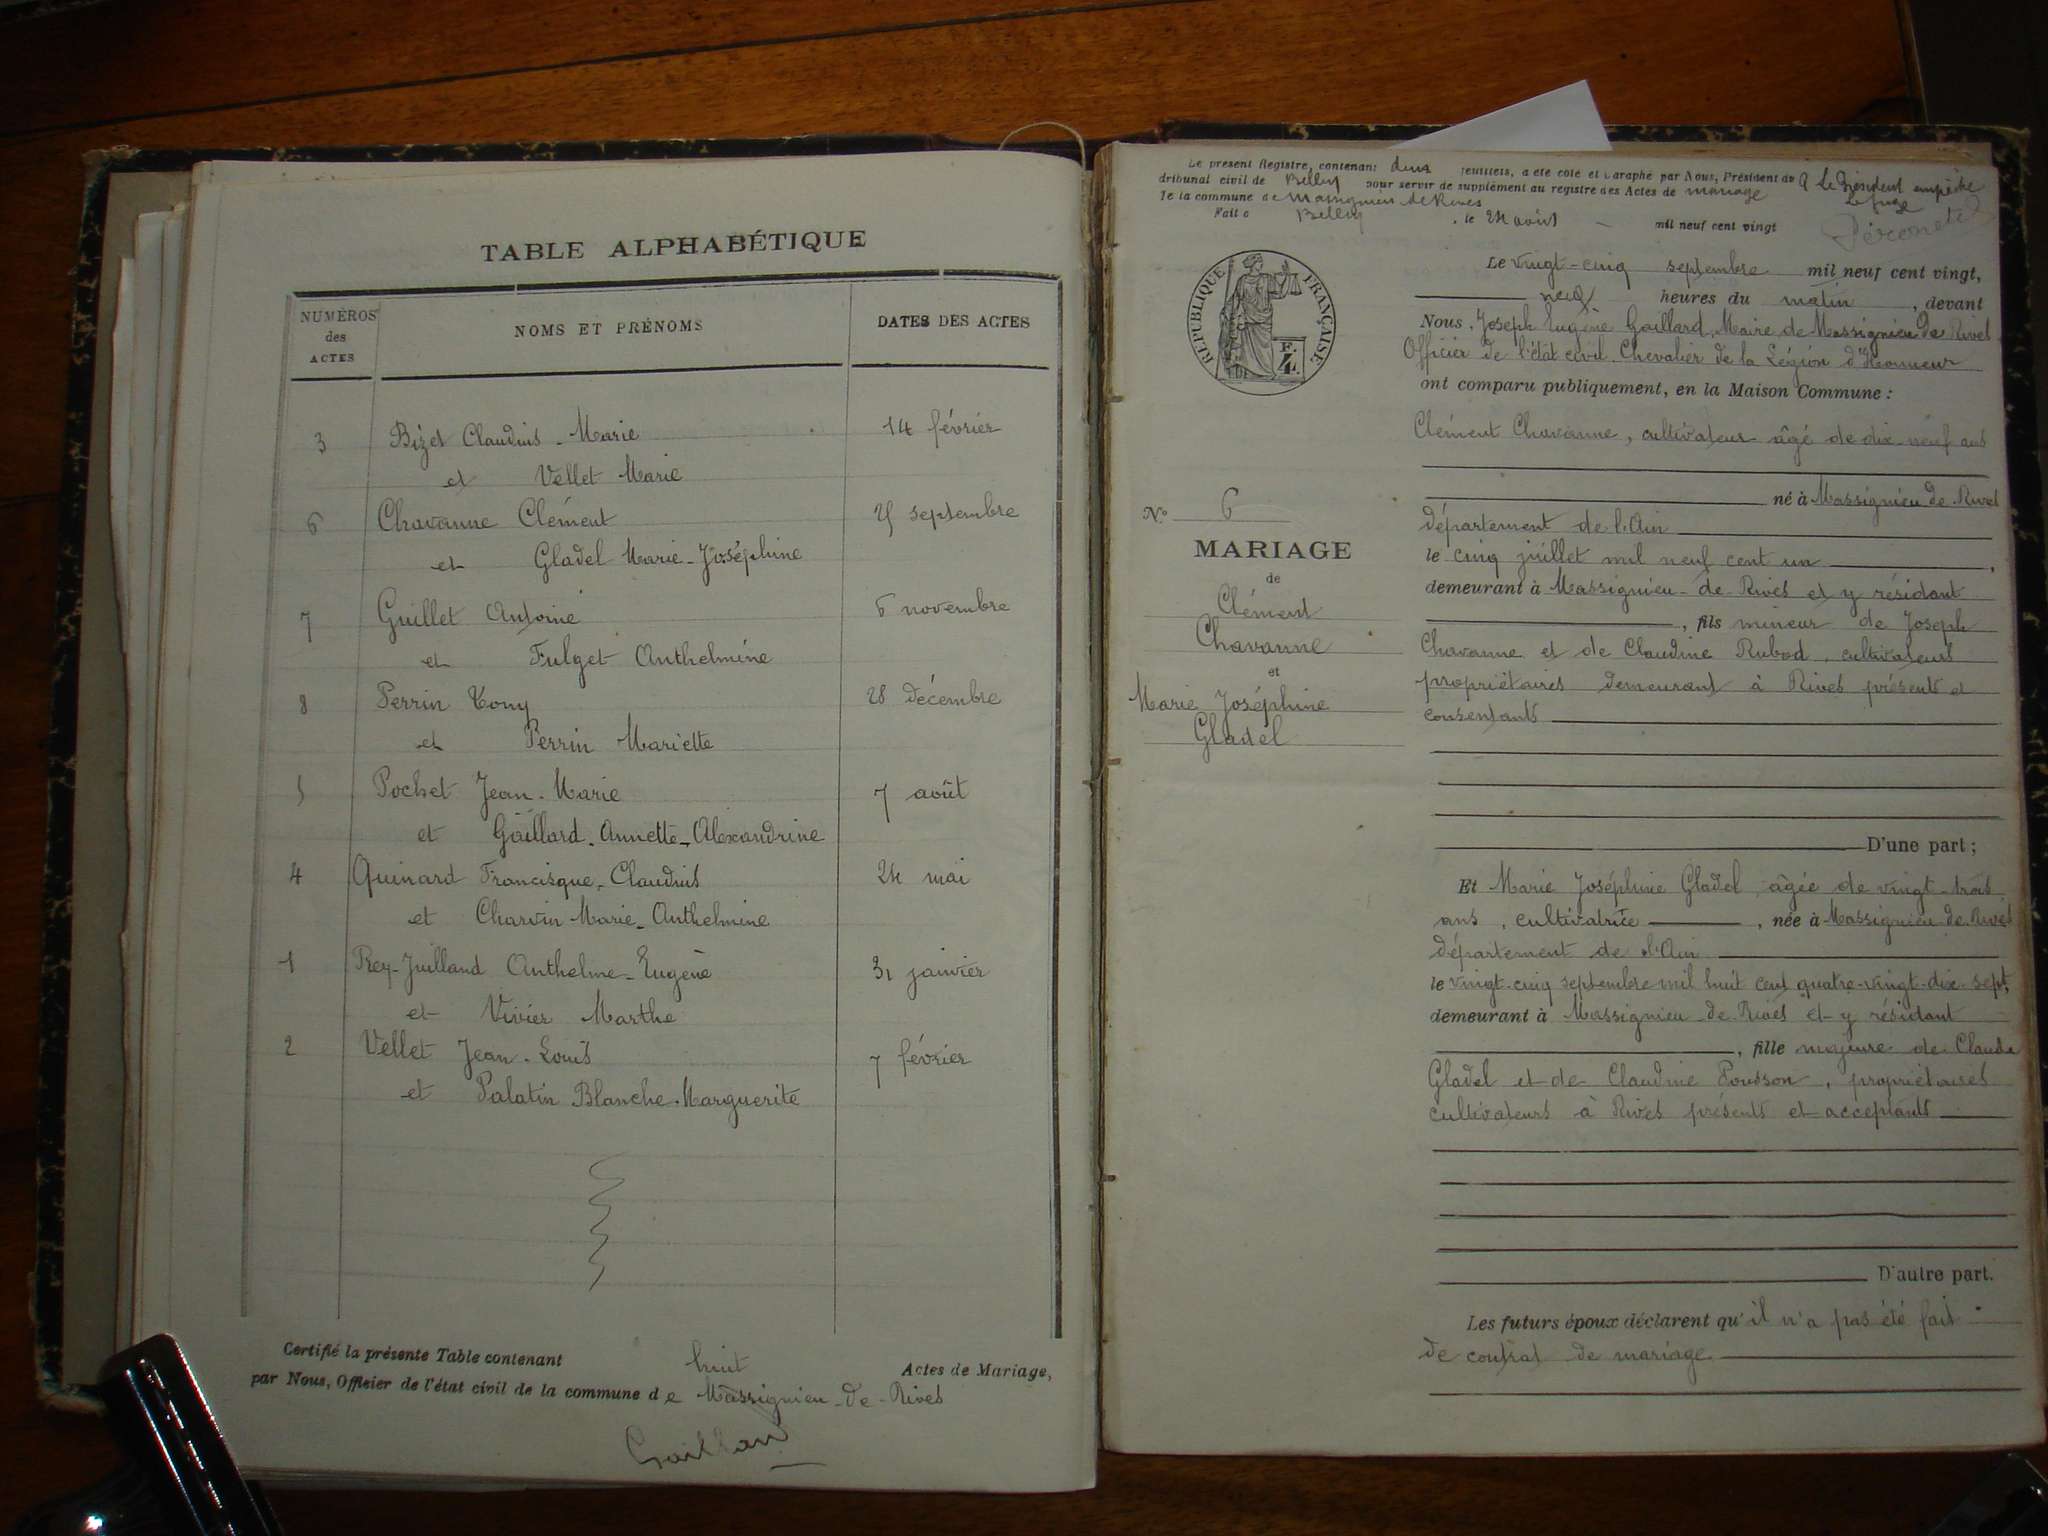 TABLE ALPHABÉTIQUE
NUMÉROS des ACTES
NOMS ET PRÉNOMS
DATES DES ACTES
3 Bizet Claudius-Marie 14 février
et Vellet Marie
6 Chavanne Clément 25 septembre
et Gladel Marie-Joséphine
7 Guillet Antoine 6 novembre
et Fulget Anthelmine
8 Perrin Tony 28 décembre
et Perrin Mariette
5 Pochet Jean-Marie 7 août
et Gaillard-Annette-Alexandrine
4 Quinard Francisque-Claudius 24 mai
et Charvin Marie-Anthelmine
1 Rey-Juilland Anthelme-Eugène 31 janvier
et Vivier Marthe
2 Vellet Jean-Louis 7 février
et Palatin Blanche-Marguerite
Certifié la présente Table contenant huit Actes de Mariage,
par Nous, Officier de l'état civil de la commune de Massignieu-de-Rives
Gaillard
Le présent Registre, contenant deux feuillets, a été coté et paraphé par Nous, Président du
tribunal civil de Belley pour servir de supplément au registre des Actes de mariage
de la commune de Massignieu de Rives
Fait à Belley, le 24 août mil neuf cent vingt
Le Président empêché
Le Juge
RÉPUBLIQUE FRANÇAISE
F. 4
Le vingt-cinq septembre mil neuf cent vingt,
neuf heures du matin, devant
Nous, Joseph Eugène Gaillard, Maire de Massignieu de Rives
Officier de l'état civil, Chevalier de la Légion d'Honneur
ont comparu publiquement, en la Maison Commune :
Clément Chavanne, cultivateur âgé de dix-neuf ans
né à Massignieu-de-Rives
département de l'Ain
le cinq juillet mil neuf cent un,
demeurant à Massignieu-de-Rives et y résidant
, fils mineur de Joseph
Chavanne et de Claudine Rubod, cultivateurs
propriétaires demeurant à Rives présents et
consentants
D'une part ;
N° 6
MARIAGE
de
Clément
Chavanne
et
Marie Joséphine
Gladel
Et Marie Joséphine Gladel, âgée de vingt-trois
ans, cultivatrice, née à Massignieu-de-Rives
département de l'Ain
le vingt-cinq septembre mil huit cent quatre-vingt-dix-sept,
demeurant à Massignieu-de-Rives et y résidant
, fille majeure de Claude
Gladel et de Claudine Pousson, propriétaires
cultivateurs à Rives présents et acceptants
D'autre part.
Les futurs époux déclarent qu'il n'a pas été fait
de contrat de mariage